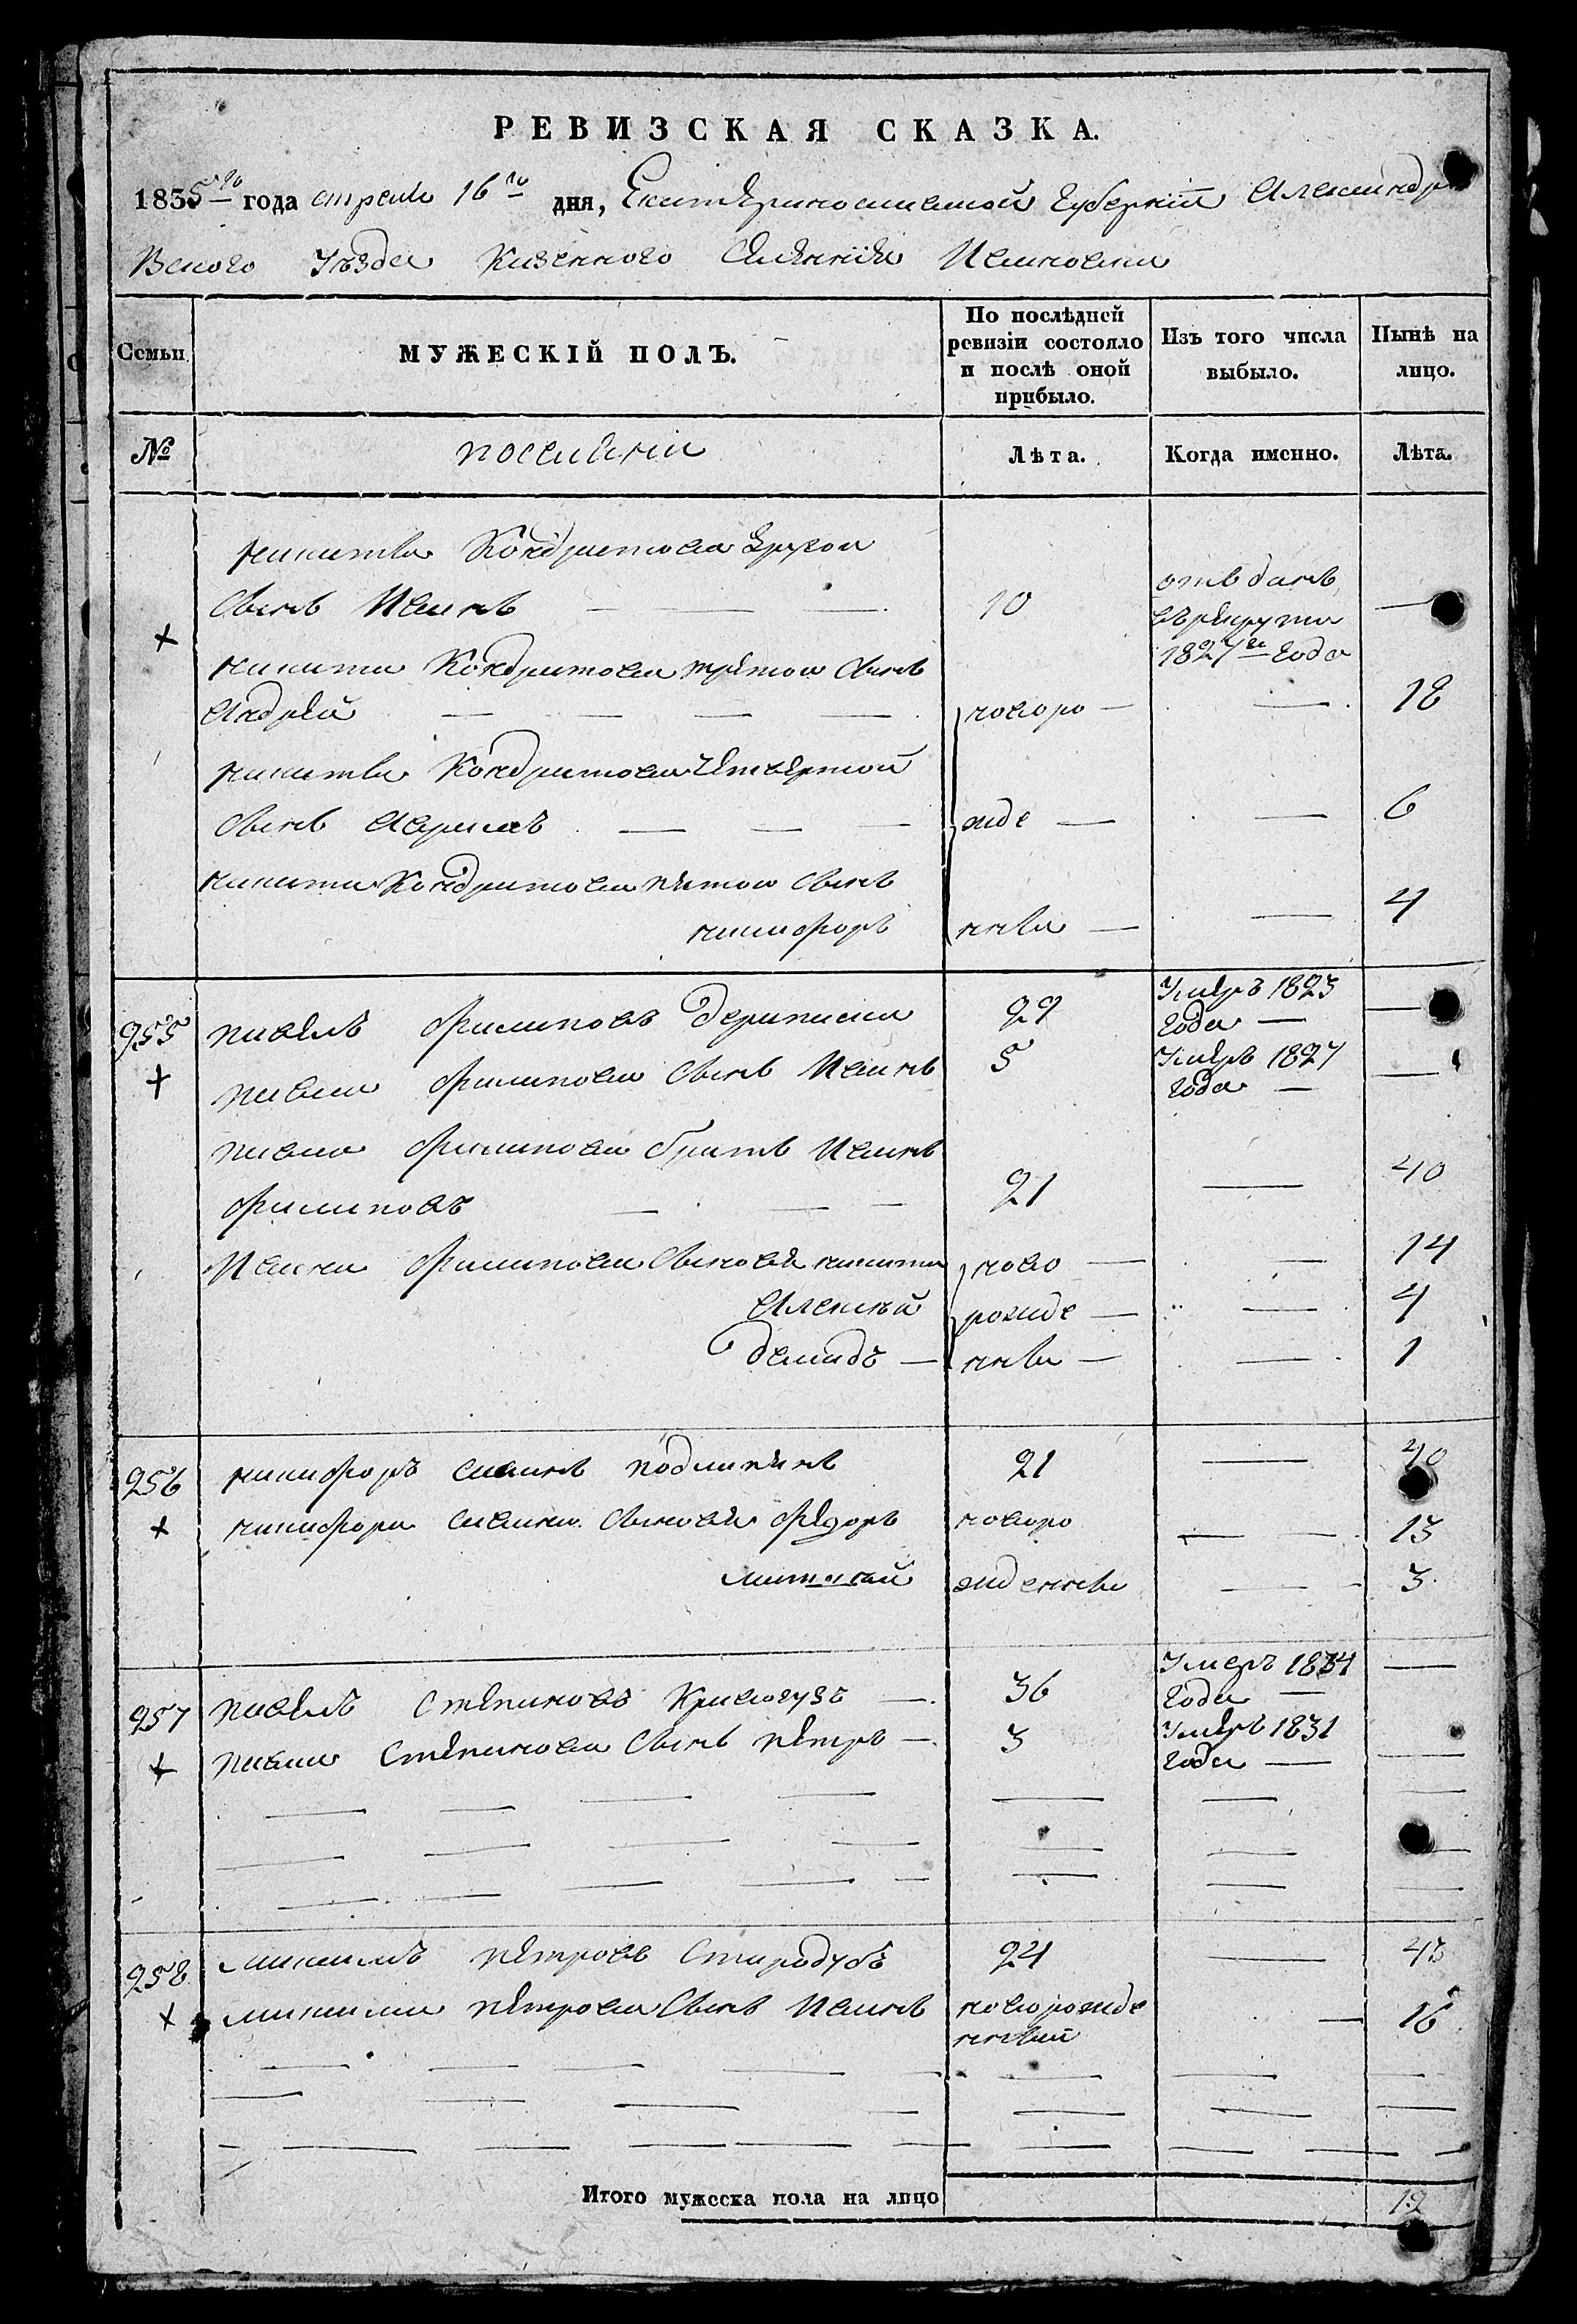 РЕВИЗСКАЯ СКАЗКА.
1835го года апреля 16го дня, Екатеринославской Губернiи Александро
Вского Уѣзда Казенного Селенiя Ивановки
Семьи.
МУЖЕСКІЙ ПОЛЪ.
По послѣдней ревизіи состояло и послѣ оной прибыло.
Изъ того числа выбыло.
Нынѣ на лицо.
№
поселяни
Лѣта.
Когда именно.
Лѣта.
никиты Кондратова другои
сынъ Иванъ — — — 10 отъданъ въ рекруты 1827го года —
никита Кондратова третои сынъ
Андрей — — — — новоро — — 18
никиты Кондратова Четвертой
сынъ Аврамъ — — — жде — — 6
никита Кондратова пятои сынъ
никифоръ нны — — 4
955 павелъ Филиповъ Дерипаска 29 Умеръ 1823 года — —
павла Филипова сынъ Иванъ 5 Умеръ 1827 года — —
павла Филипова братъ Иванъ
Филиповъ — — — 21 — 40
Ивана Филипова сыновя никита ново — — 14
Алексѣй рожде — — 4
Демидъ — нны — — 1
956 никифоръ Савинъ 21 — 40
никифора Савина сыновя Федоръ новоро — — 13
жденны — — 3
957 павелъ Степановъ Кривогузъ — 36 Умеръ 1834 года — —
павла Степанова сынъ петръ — 3 Умеръ 1831 года — —
958 максимъ петровъ Стародубъ 24 — 43
максима петрова сынъ Иванъ новорожде нный — 16
Итого мужеска пола на лицо 12